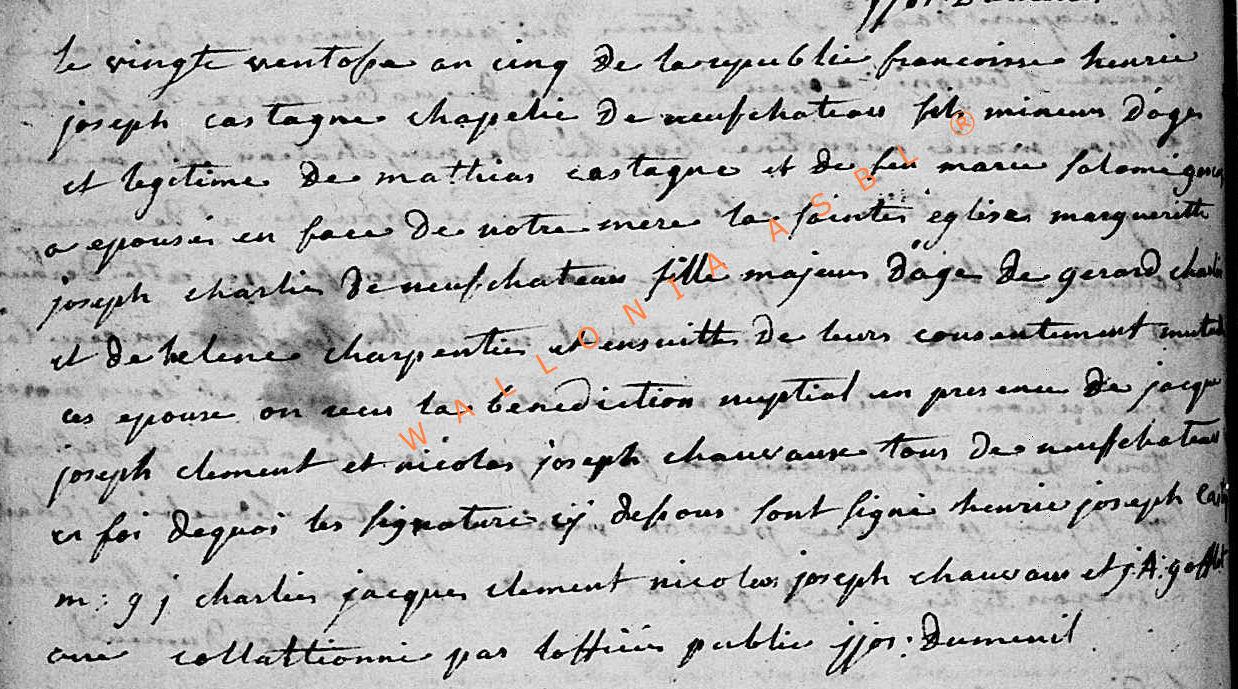 jjos: Dumenil
le vingte ventosse an cinq de la republie francoisse henrie
joseph castagne chapelie de neufchateau fils mineur d'age
et legitime de mathias castagne et de feu marie
a epousé en face de notre mere la sainte eglise margueritte
joseph charlier de neufchateau fille majeure d'age de gerard charlier
et de helene charpentier et ensuitte de leurs consentement mutuel
ces epouse on recu la benediction nuptial en presence de jacque
joseph clement et nicolas joseph chauvaux tous de neufchateau
en foi dequoi les signature cy dessous sont signé henrie joseph
m: g j charlier jacques clement nicolas joseph chauvaux et j: A: gofflot
curé collattionné par lofficié public jjos: Dumenil
WALLONIA ASBL ®